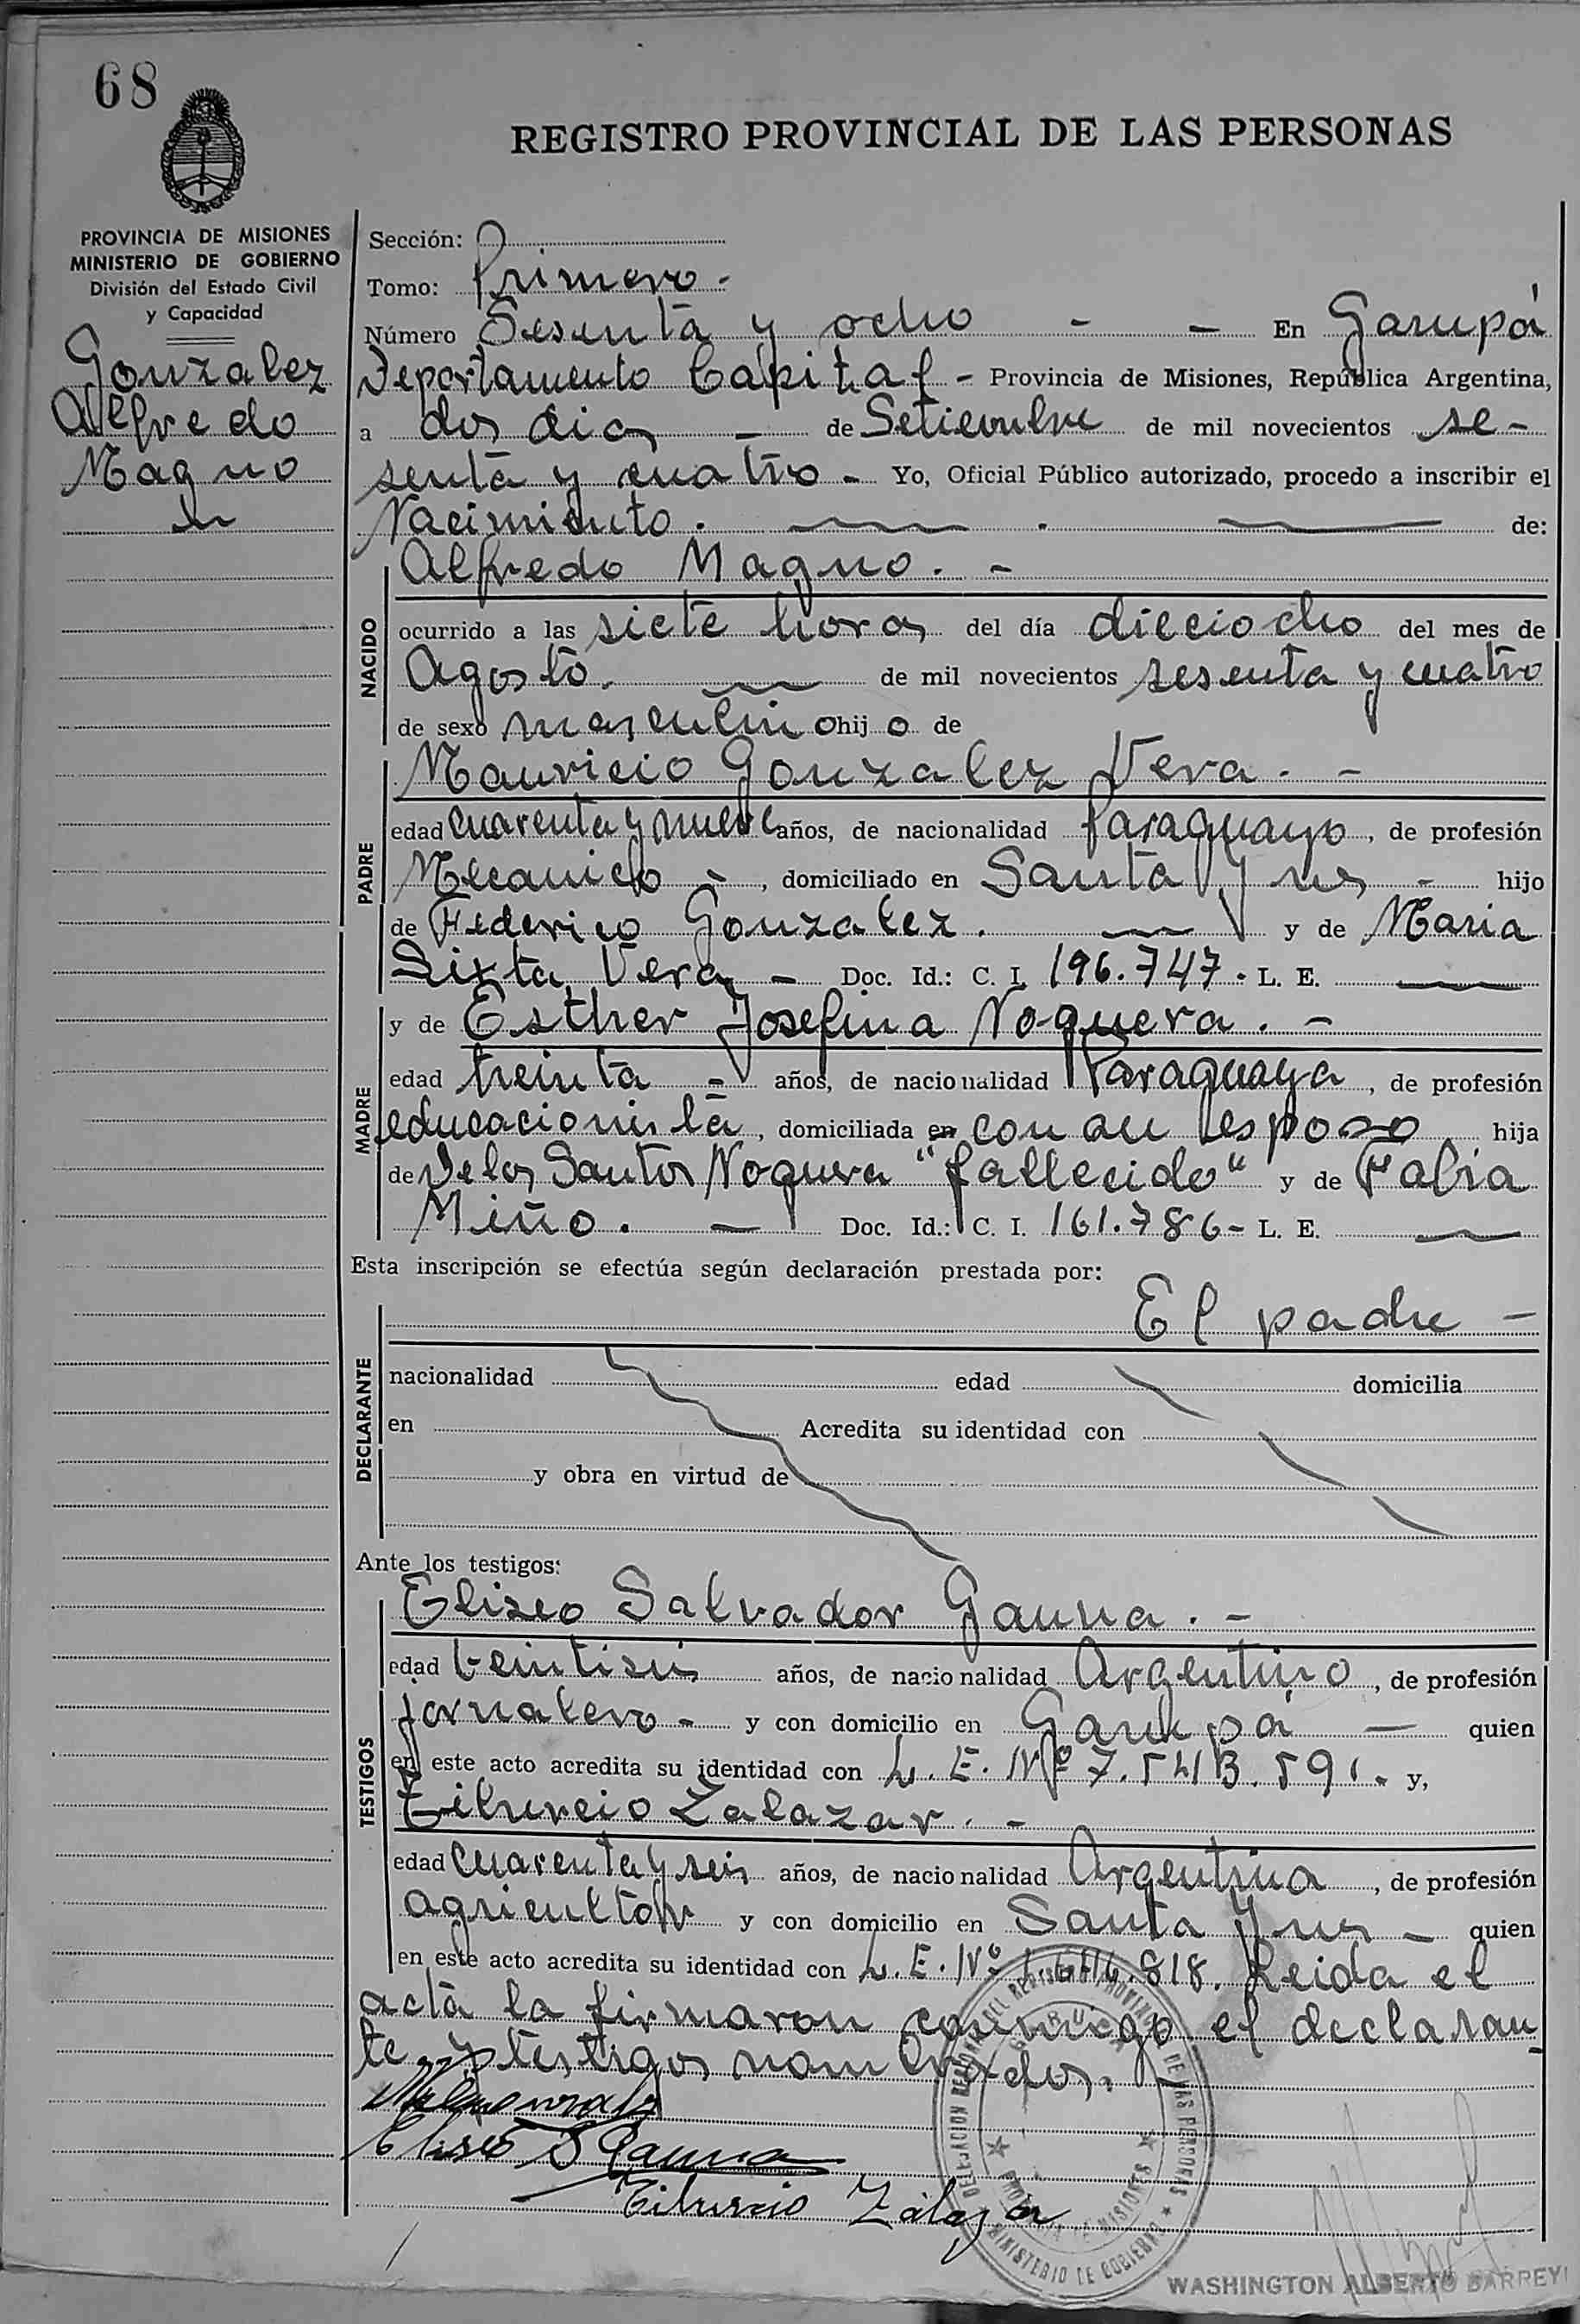 68
REGISTRO PROVINCIAL DE LAS PERSONAS
PROVINCIA DE MISIONES
MINISTERIO DE GOBIERNO
División del Estado Civil
y Capacidad
Gonzalez
Alfredo
Magno
Sección:
Tomo: Primero -
Número Sesenta y ocho - - En Garupá
Departamento Capital - Provincia de Misiones, República Argentina,
a dos dias - de Setiembre de mil novecientos se-
senta y cuatro - Yo, Oficial Público autorizado, procedo a inscribir el
Nacimiento. de:
Alfredo Magno. -
NACIDO
ocurrido a las siete horas del día dieciocho del mes de
Agosto. de mil novecientos sesenta y cuatro
de sexo masculino hijo de
Mauricio Gonzalez Vera. -
PADRE
edad cuarenta y nueve años, de nacionalidad Paraguayo, de profesión
Mecanico -, domiciliado en Santa Ynes - hijo
de Federico Gonzalez. y de Maria
Sixta Vera - Doc. Id.: C. I. 196.747 - L. E.
y de Esther Josefina Noguera. -
MADRE
edad treinta - años, de nacionalidad Paraguaya, de profesión
educacionista, domiciliada en con su esposo hija
de Delos Santos Noguera "fallecido" y de Fabia
Miño. - Doc. Id.: C. I. 161.786 - L. E.
Esta inscripción se efectúa según declaración prestada por:
El padre -
DECLARANTE
nacionalidad edad domicilia
en Acredita su identidad con
y obra en virtud de
Ante los testigos:
Eliseo Salvador Gauna. -
TESTIGOS
edad veintiseis años, de nacionalidad Argentino, de profesión
jornalero - y con domicilio en Garupá - quien
en este acto acredita su identidad con L. E. Nº y,
Tiburcio Zalazar. -
edad cuarenta y seis años, de nacionalidad Argentina, de profesión
agricultor y con domicilio en Santa Ynes - quien
en este acto acredita su identidad con L. E. Nº .818. Leida el
acta la firmaron conmigo el declaran-
te y testigos nombrados.
Eliseo S Gauna
Tiburcio Zalazar
DELEGACION REGIONAL DEL REGISTRO PROVINCIAL DE LAS PERSONAS
GARUPA
PROVINCIA DE MISIONES
MINISTERIO DE GOBIERNO
WASHINGTON ALBERTO BARREY